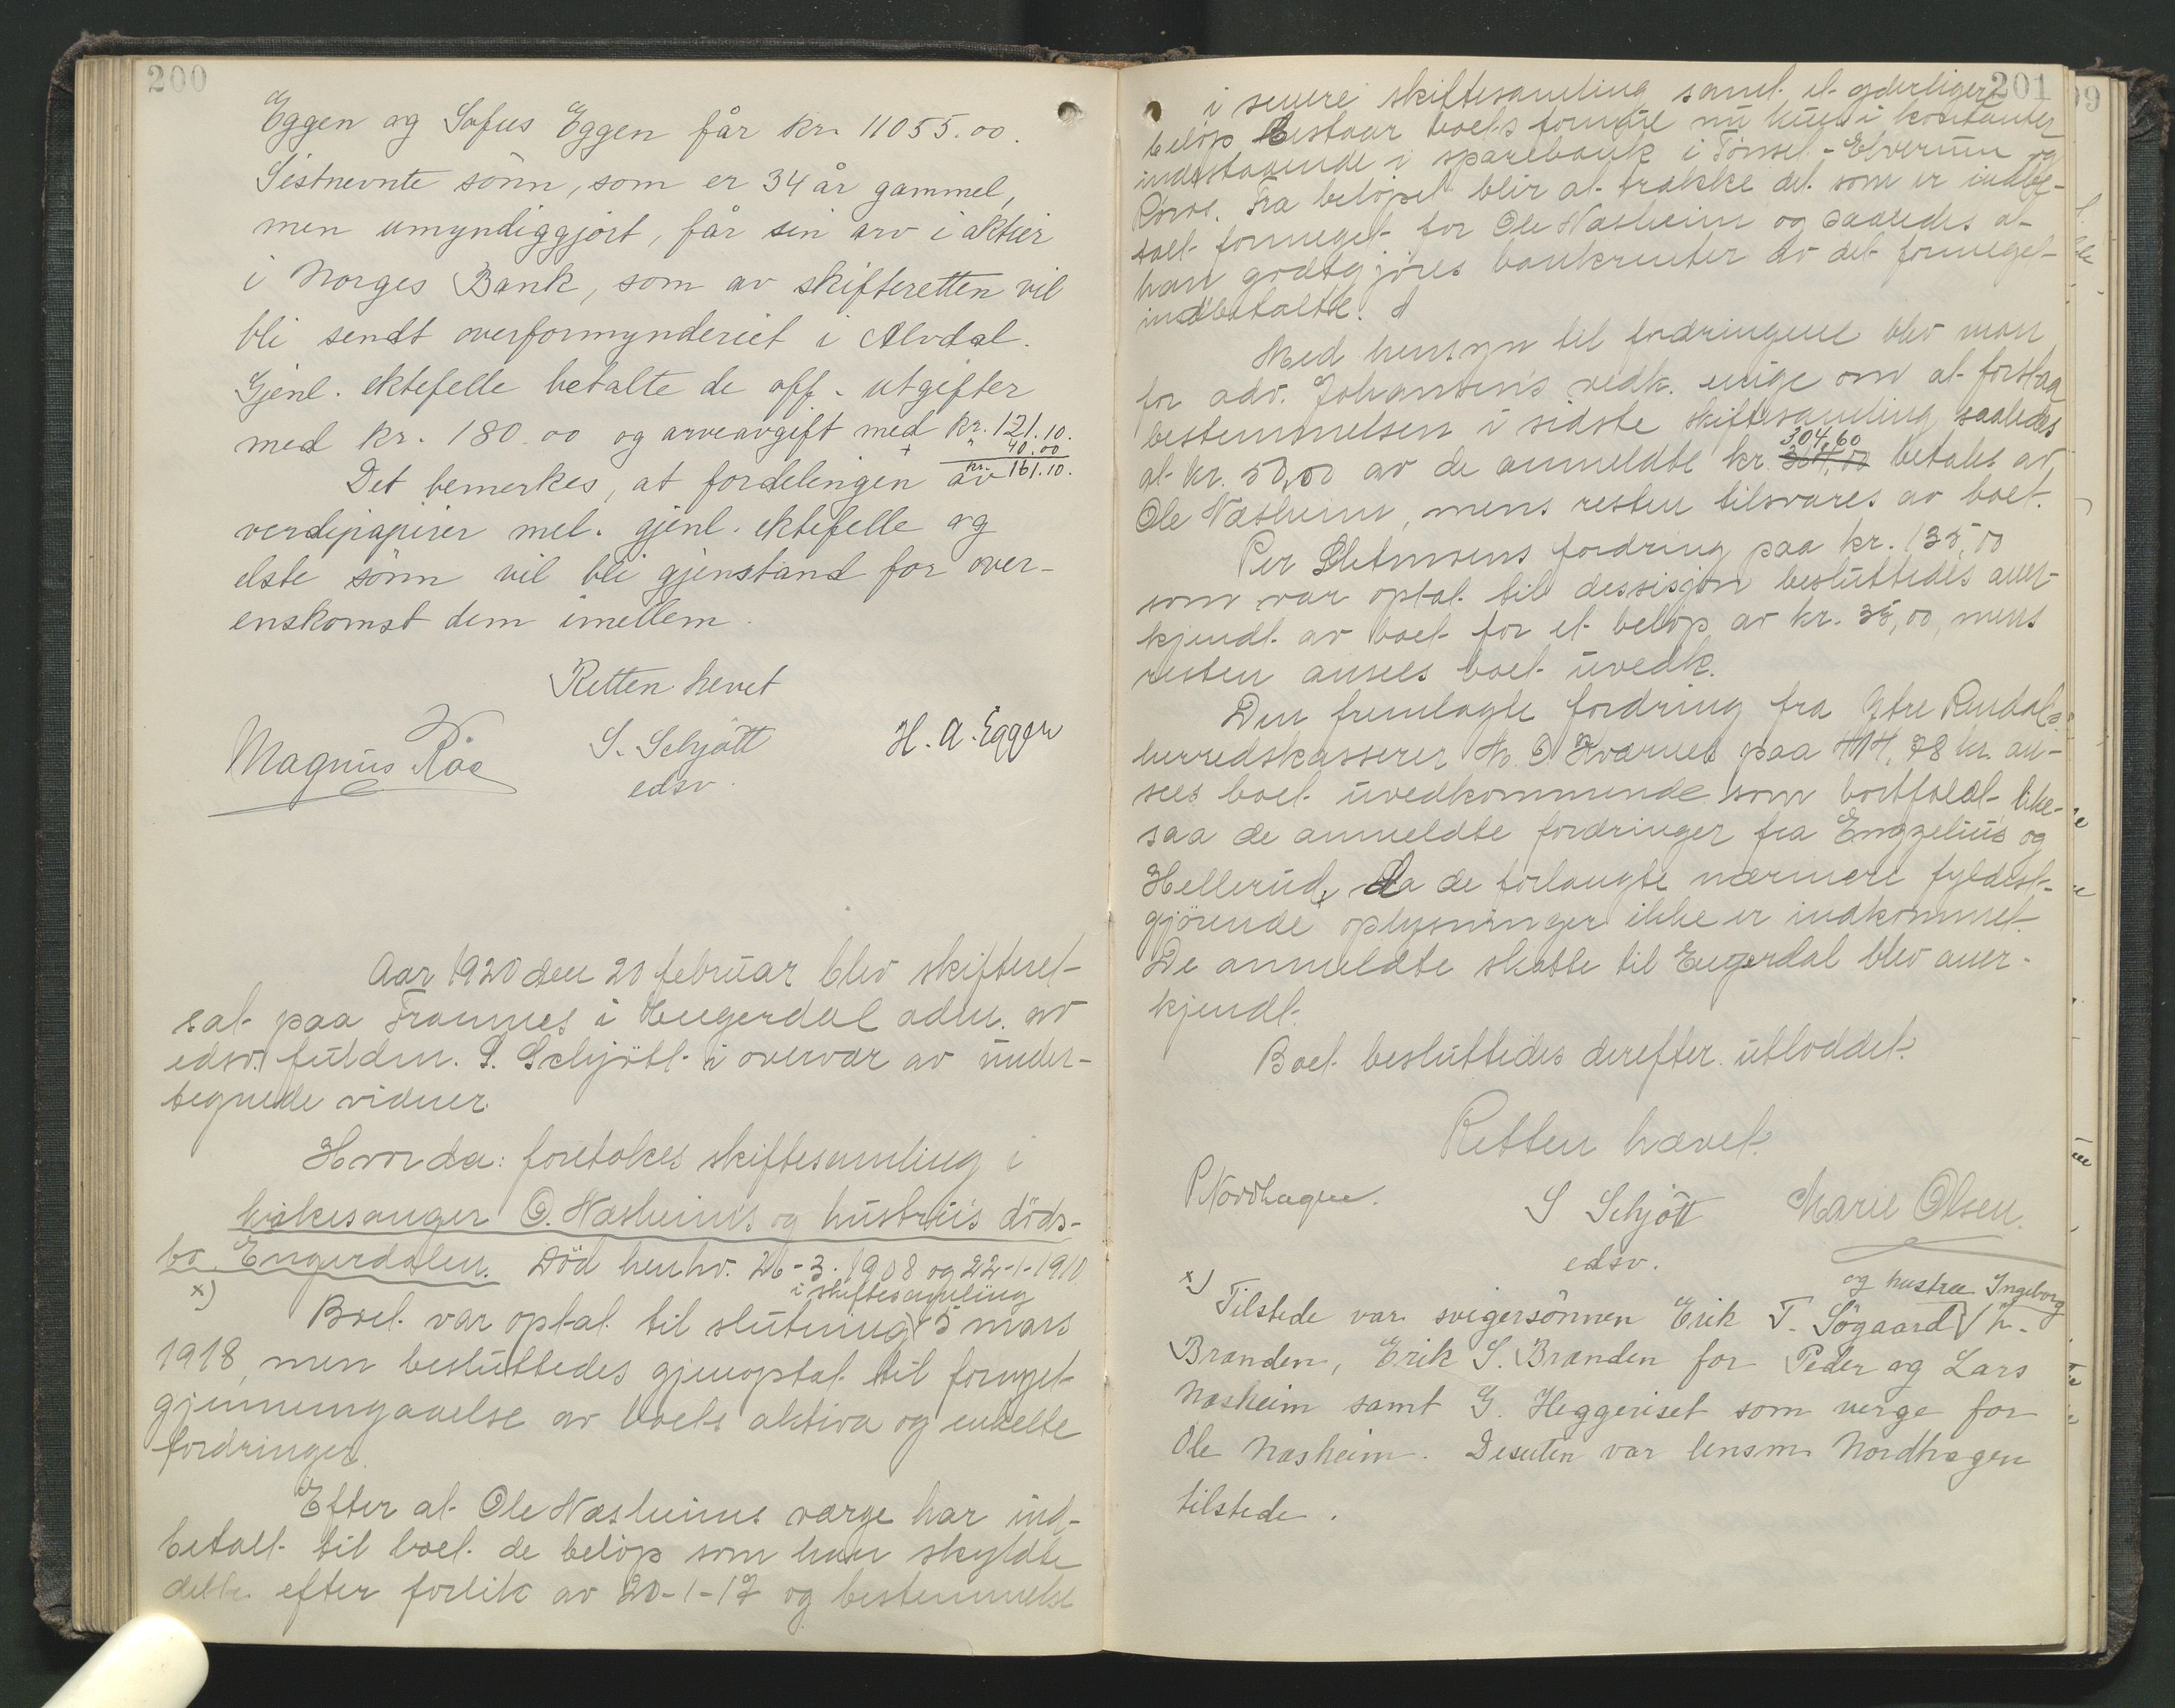 200
Eggen og Sofus Eggen får kr. 11055.00.
Sistnevnte sönn, som er 34 år gammel,
men umyndiggjort, får sin arv i aktier
i Norges Bank, som av skifteretten vil
bli sendt overformynderiet i Alvdal.
Gjenl. ektefelle betalte de off. utgifter
med kr. 180.00 og arveavgift med kr. 121.10.
+ " 40.00
Det bemerkes, at fordelingen av kr. 161.10.
verdipapirer mel. gjenl. ektefelle og
elste sönn vil bli gjenstand for over-
enskomst dem imellem.
Retten hevet
Magnus Råe S. Schjött H. A. Eggen
edsv.
Aar 1920 den 20 februar blev skifteret
sat paa Framnes i Engerdal adm. av
edsv. fuldm. S. Schjött i overvær av under-
tegnede vidner.
Hvorda: foretokes skiftesamling i
kirkesanger O. Næsheim's og hustru's döds-
bo Engerdalen. Död henhv. 26-3-1908 og 22-1-1910.
x) i skiftesamling
Boet var optat til slutning 5 mars
1918, men besluttedes gjenoptat til fornyet
gjennemgaaelse av boets aktiva og enkelte
fordringer.
Efter at Ole Næsheims værge har ind-
betalt til boet de belöp som han skyldte
dette efter forlik av 20-1-17 og bestemmelse
201
i senere skiftesamling samt et yderligere
belöp bestaar boets formue nu kun i kontanter
indestaaende i sparebank i Tönset - Elverum og
Röros. Fra belöpet blir at trække det som er indbe-
talt formeget for Ole Næsheim og saaledes at
han godtgjöres bankrenter av det formeget
indbetalte.
Med hensyn til fordringene blev man
for adv. Johansens vedk. enige om at forstaa
bestemmelsen i sidste skiftesamling saaledes
304,60
at kr. 50,00 av de anmeldte kr. 304,00 betales av
Ole Næsheim, mens resten tilsvares av boet.
Per Sletmoens fordring paa kr. 135,00
som var optat til dessisjon besluttedes aner-
kjendt av boet for et belöp av kr. 35,00, mens
resten ansees boet uvedk.
Den fremlagte fordring fra Ytre Rendals
herredskasserer N. O Kværnes paa 414,78 kr. an-
sees boet uvedkommende som bortfaldt, like-
saa de anmeldte fordringer fra Engzelius og
Hellerud, da de forlangte nærmere fyldest-
gjörende oplysninger ikke er indkommet.
De anmeldte skatte til Engerdal blev aner-
kjendt.
Boet besluttedes derefter utloddet.
Retten hævet.
P. Nordhagen. S Schjött Marie Olsen.
edsv.
og hustru Ingeborg
x) Tilstede var svigersönnen Erik T. Sögaard √ h.
Brænden, Erik S. Brænden for Peder og Lars
Næsheim samt G. Heggeriset som verge for
Ole Næsheim. Desuten var lensm. Nordhagen
tilstede.